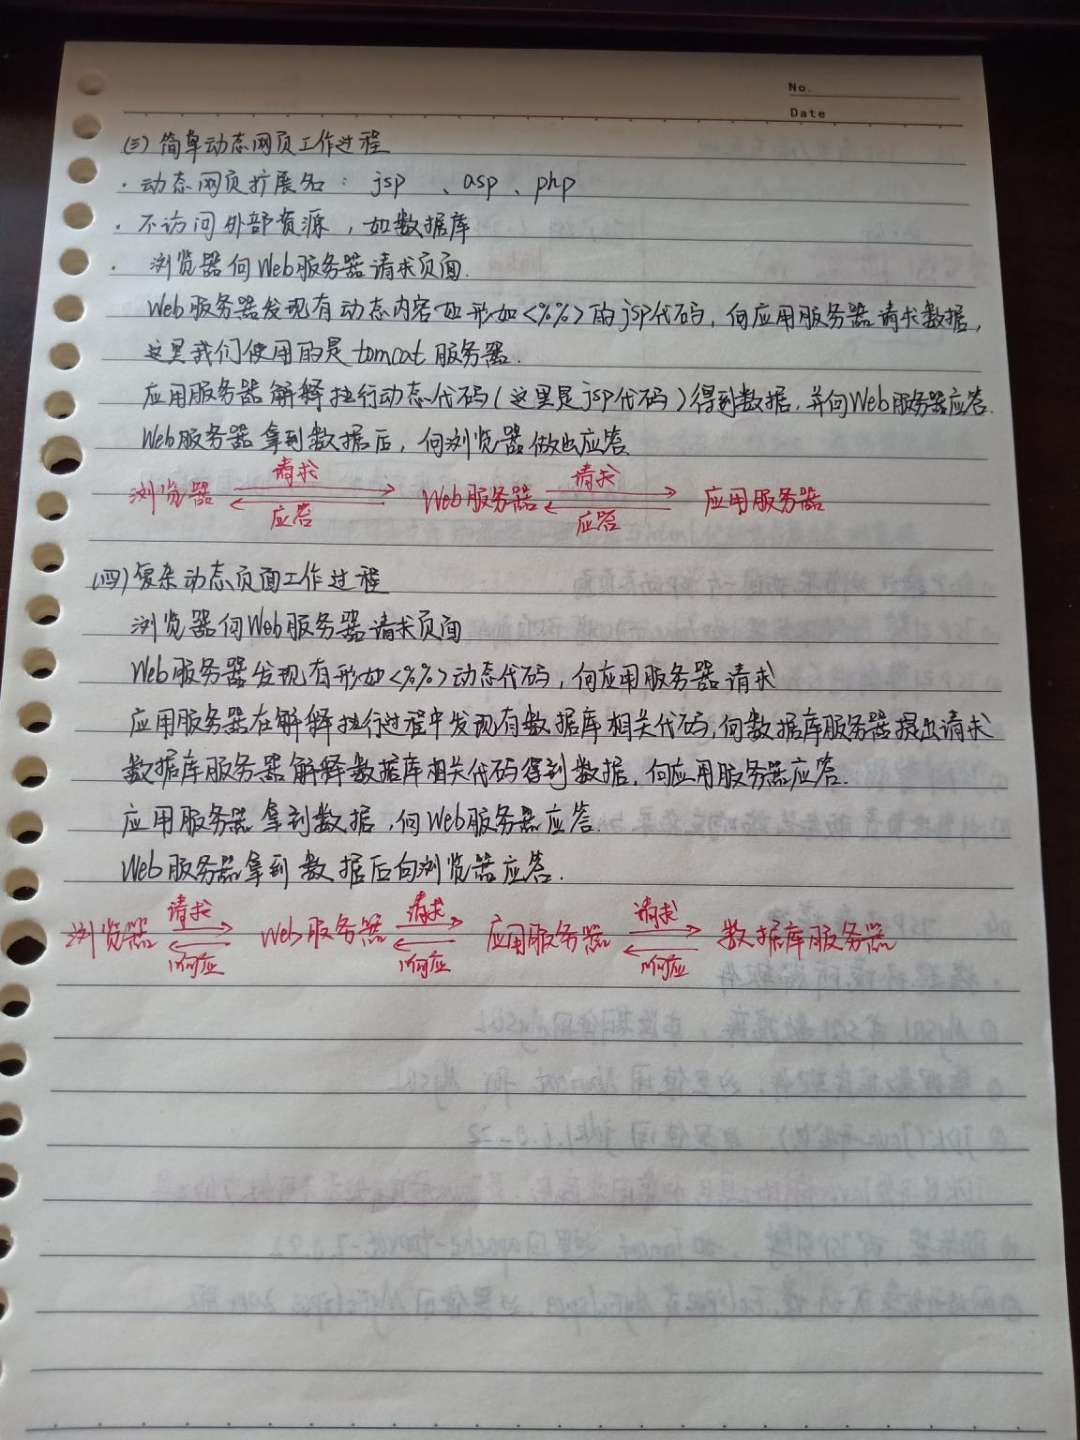 No.
Date
(三) 简单动态网页工作过程
· 动态网页扩展名: jsp 、asp、php
· 不访问外部资源,如数据库
· 浏览器向Web服务器请求页面.
Web服务器发现有动态内容 如形如<%%>的jsp代码,向应用服务器请求数据,
这里我们使用的是tomcat服务器.
应用服务器解释执行动态代码(这里是jsp代码)得到数据,并向Web服务器应答.
Web服务器拿到数据后,向浏览器做出应答
浏览器 请求 应答 Web服务器 请求 应答 应用服务器
(四)复杂动态页面工作过程
浏览器向Web服务器请求页面
Web服务器发现有形如<%%>动态代码,向应用服务器请求
应用服务器在解释执行过程中发现有数据库相关代码,向数据库服务器提出请求
数据库服务器解释数据库相关代码得到数据,向应用服务器应答.
应用服务器拿到数据,向Web服务器应答.
Web服务器拿到数据后向浏览器应答.
浏览器 请求 响应 Web服务器 请求 响应 应用服务器 请求 响应 数据库服务器